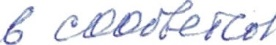 в соответств